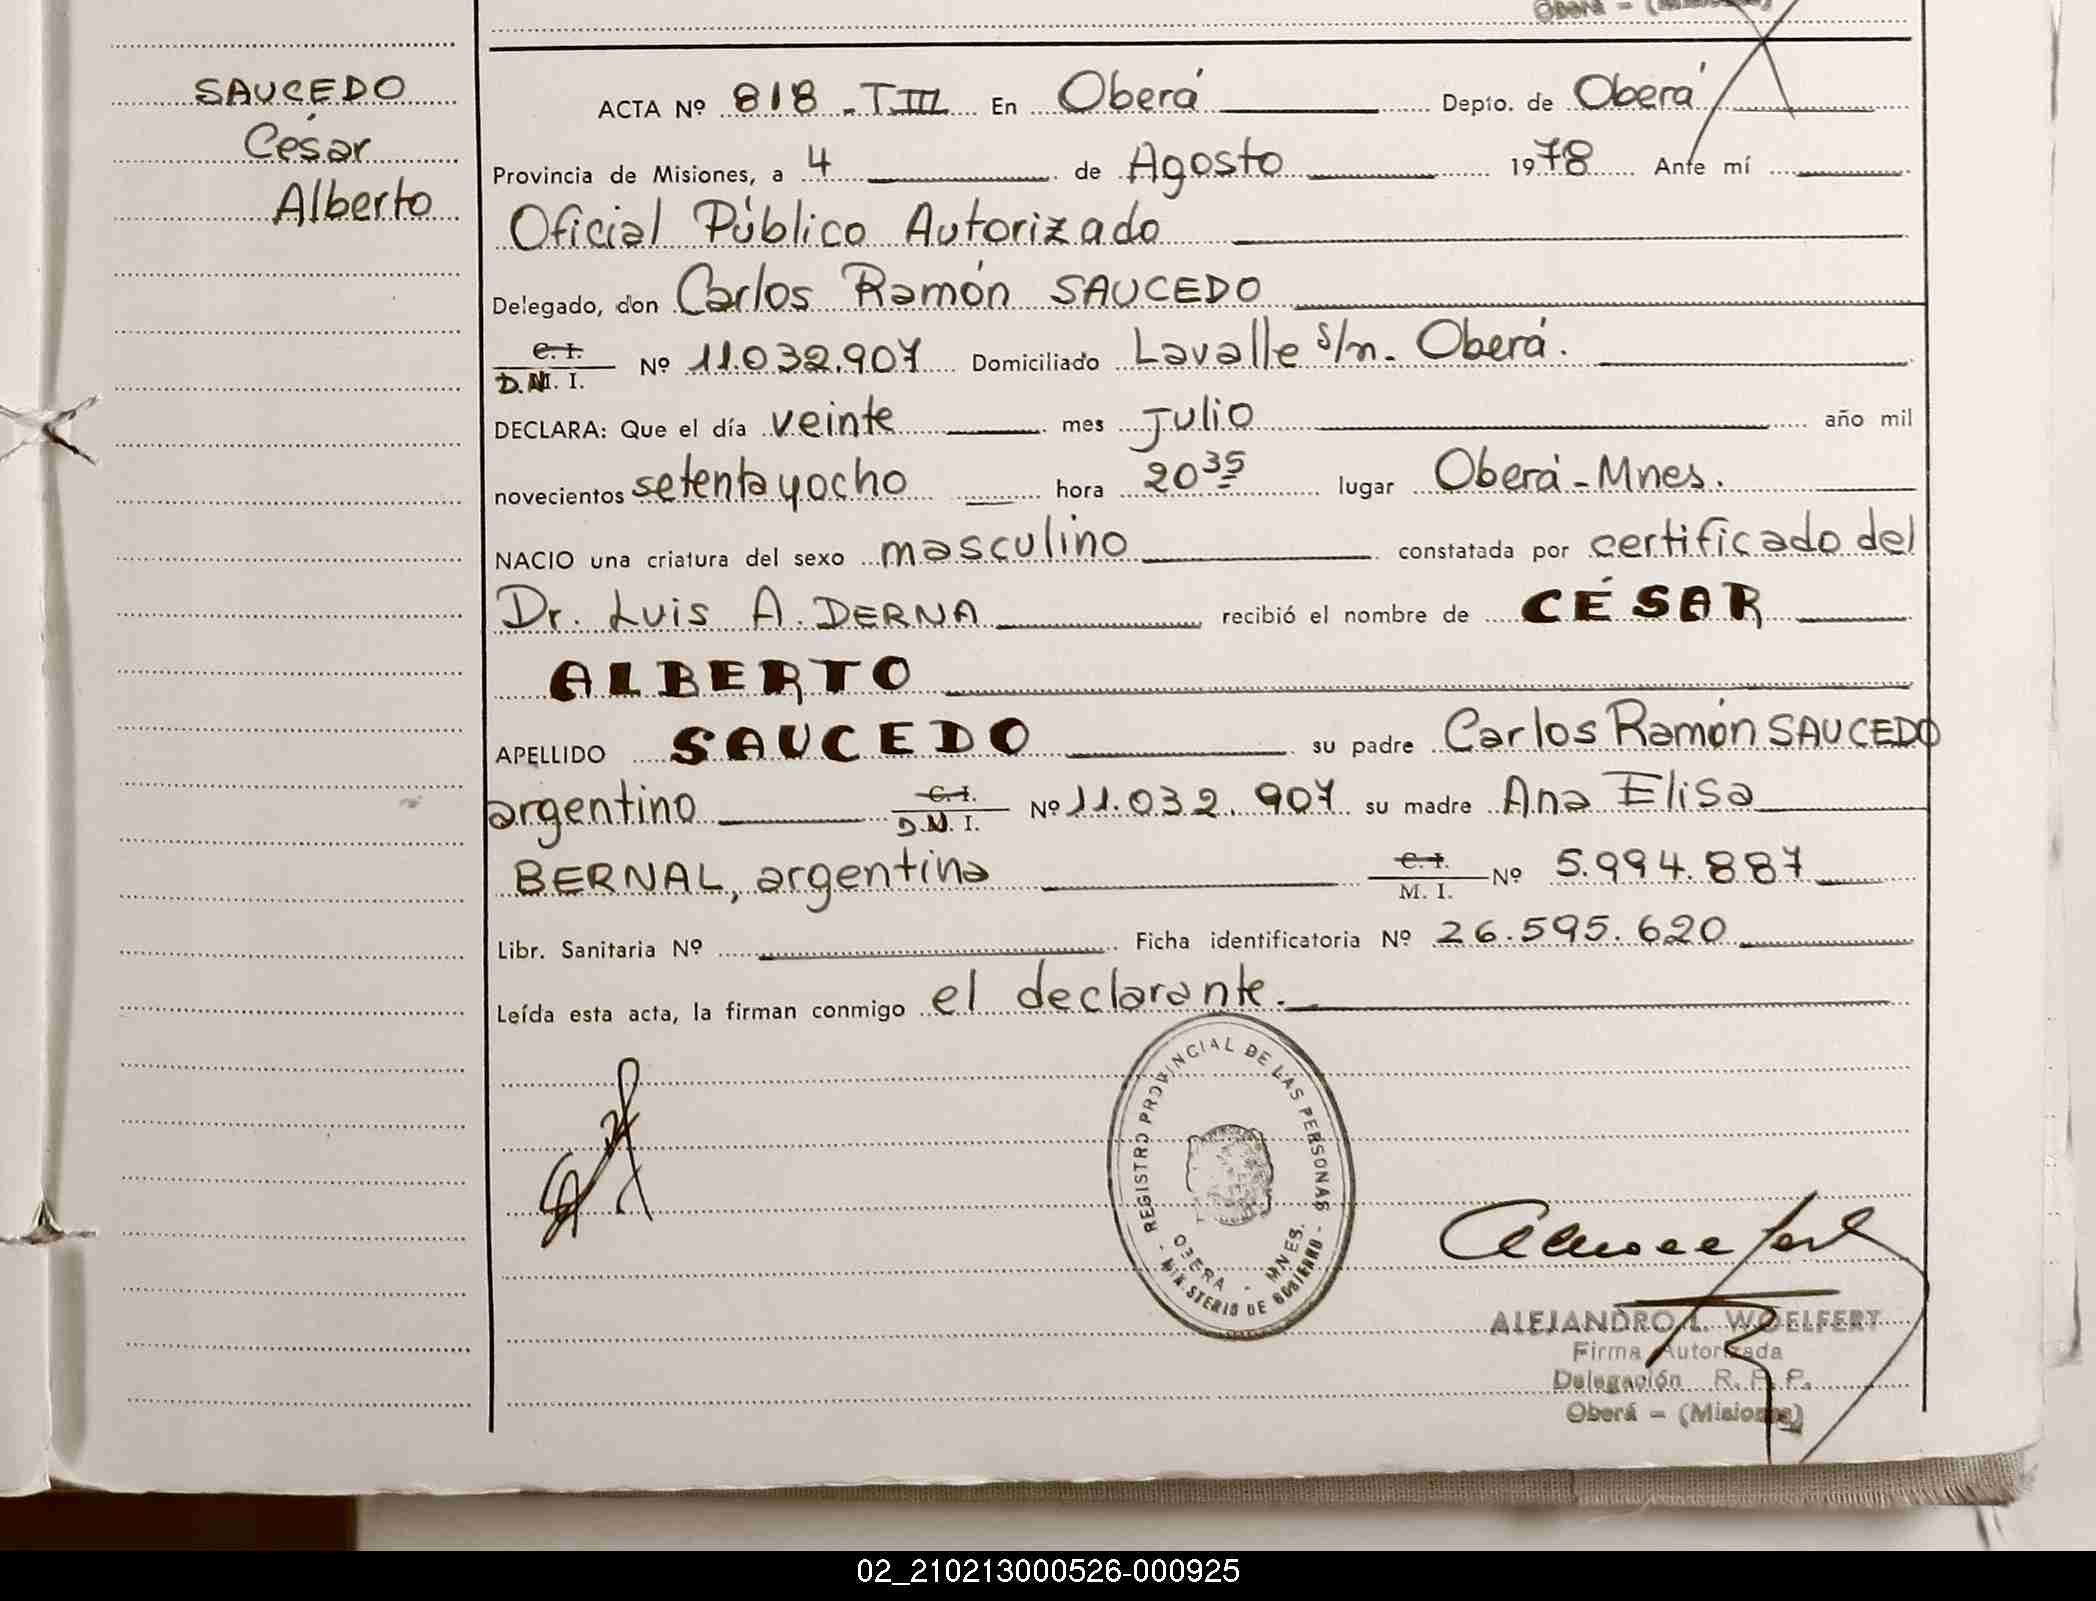 Oberá - (Misiones)
SAUCEDO
César
Alberto
ACTA Nº 818 - T.III En Oberá Depto. de Oberá
Provincia de Misiones, a 4 de Agosto 1978 Ante mí
Oficial Público Autorizado
Delegado, don Carlos Ramón SAUCEDO
C. I.
D.N.I. Nº 11.032.907 Domiciliado Lavalle s/n. Oberá.
DECLARA: Que el día veinte mes Julio año mil
novecientos setenta y ocho hora 20 35 lugar Oberá - Mnes.
NACIO una criatura del sexo masculino constatada por certificado del
Dr. Luis A. DERNA recibió el nombre de CÉSAR
ALBERTO
APELLIDO SAUCEDO su padre Carlos Ramón SAUCEDO
argentino C. I. D.N.I. Nº 11.032.907 su madre Ana Elisa
BERNAL, argentina C. I. M. I. Nº 5.994.887
Libr. Sanitaria Nº Ficha identificatoria Nº 26.595.620
Leída esta acta, la firman conmigo el declarante.
REGISTRO PROVINCIAL DE LAS PERSONAS
OBERA - MNES.
- MINISTERIO DE GOBIERNO -
ALEJANDRO L. WOELFERT
Firma Autorizada
Delegación R. P. P.
Oberá - (Misiones)
02_210213000526-000925